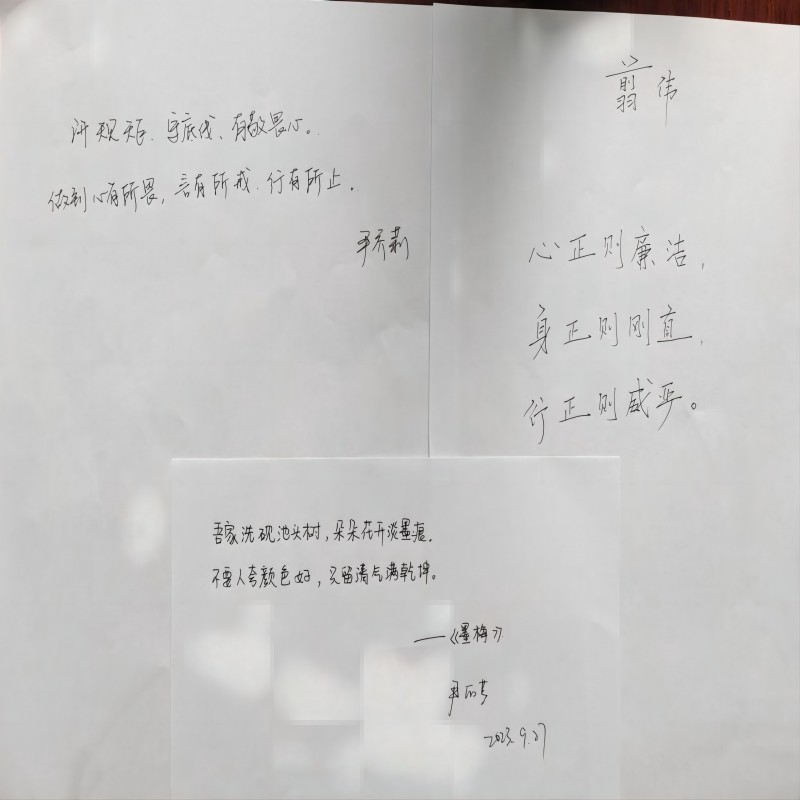 讲规矩、守底线、有敬畏心。
做到心有所畏，言有所戒、行有所止。
翦伟
心正则廉洁，
身正则刚直，
行正则威严。
吾家洗砚池头树，朵朵花开淡墨痕。
不要人夸颜色好，只留清气满乾坤。
——《墨梅》
2023.9.27